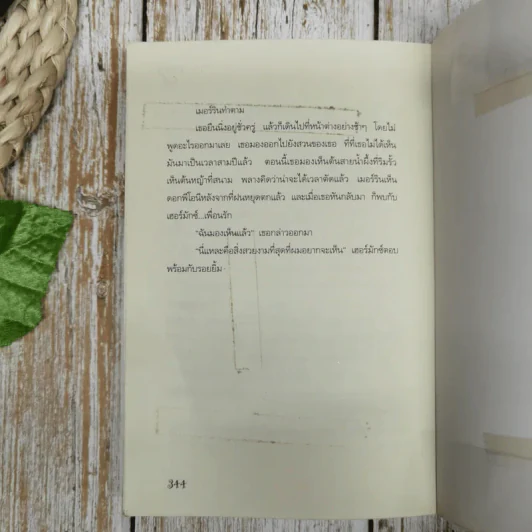 เมอร์รินทำตาม
เธอยืนนิ่งอยู่ชั่วครู่ แล้วก็เดินไปที่หน้าต่างอย่างช้าๆ โดยไม่
พูดอะไรออกมาเลย เธอมองออกไปยังสวนของเธอ ที่ที่เธอไม่ได้เห็น
มันมาเป็นเวลาสามปีแล้ว ตอนนี้เธอมองเห็นต้นสายน้ำผึ้งที่ริมรั้ว
เห็นต้นหญ้าที่สนาม พลางคิดว่าน่าจะได้เวลาตัดแล้ว เมอร์รินเห็น
ดอกพีโอนีหลังจากที่ฝนหยุดตกแล้ว และเมื่อเธอหันกลับมา ก็พบกับ
เฮอร์มักซ์...เพื่อนรัก
"ฉันมองเห็นแล้ว" เธอกล่าวออกมา
"นี่แหละคือสิ่งสวยงามที่สุดที่ผมอยากจะเห็น" เฮอร์มักซ์ตอบ
พร้อมกับรอยยิ้ม
344